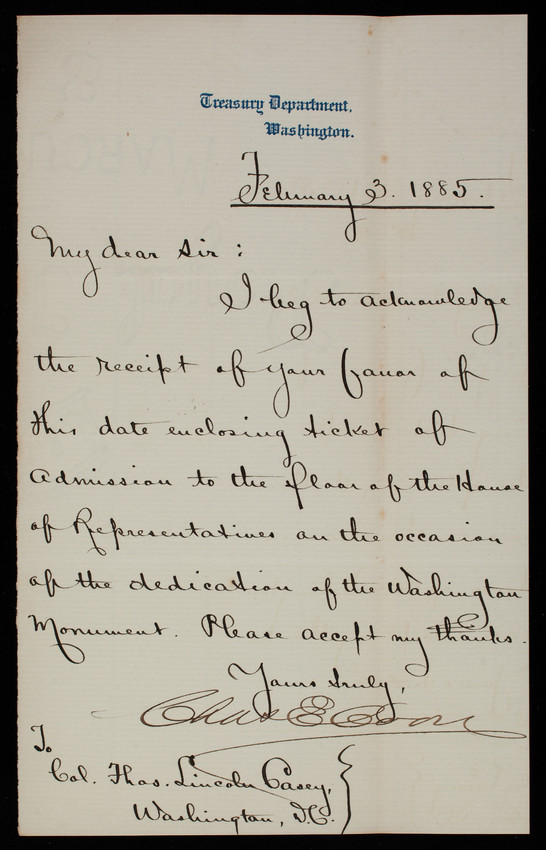 Treasury Department,
Washington.
February 3. 1885.
My dear Sir:
I beg to acknowledge
the receipt of your favor of
this date enclosing ticket of
admission to the floor of the House
of Representatives on the occasion
of the dedication of the Washington
Monument. Please accept my thanks.
Yours truly,
Chas E Coon
To
Col. Thos. Lincoln Casey,
Washington, D.C.